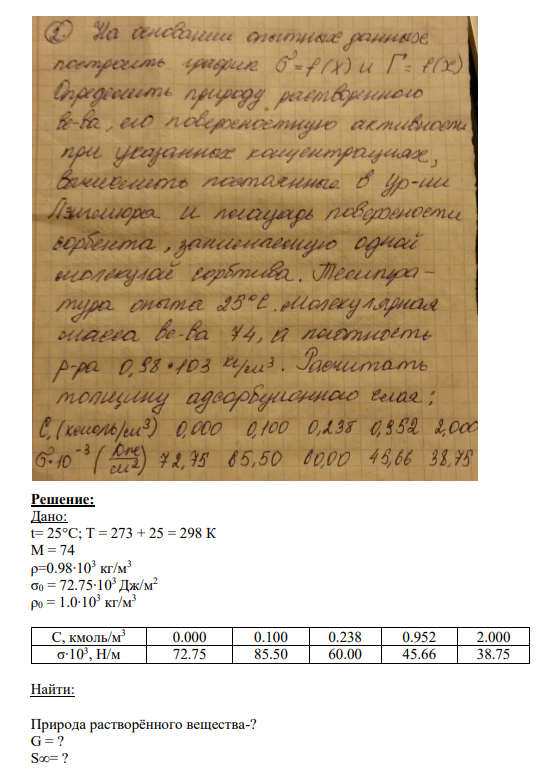 2) На основании опытных данных
построить график σ = f(x) и Г = f(x)
Определить природу растворенного
ве-ва, его поверхностную активность
при указанных концентрациях,
вычислить постоянные в ур-нии
Лэнгмюра и площадь поверхности
сорбента, занимаемую одной
молекулой сорбтива. Темпера-
тура опыта 25°С. Молекулярная
масса ве-ва 74, а плотность
р-ра 0,98 • 103 кг/м3. Расчитать
толщину адсорбционного слоя:
С, (кмоль/м3) 0,000 0,100 0,238 0,952 2,000
σ·10-3 (Дж/м2) 72,75 65,50 60,00 45,66 38,75
Решение:
Дано:
t= 25°С; T = 273 + 25 = 298 К
М = 74
ρ=0.98·10³ кг/м³
σ₀ = 72.75·10³ Дж/м²
ρ₀ = 1.0·10³ кг/м³
С, кмоль/м³ 0.000 0.100 0.238 0.952 2.000
σ·10³, Н/м 72.75 85.50 60.00 45.66 38.75
Найти:
Природа растворённого вещества-?
G = ?
S∞= ?